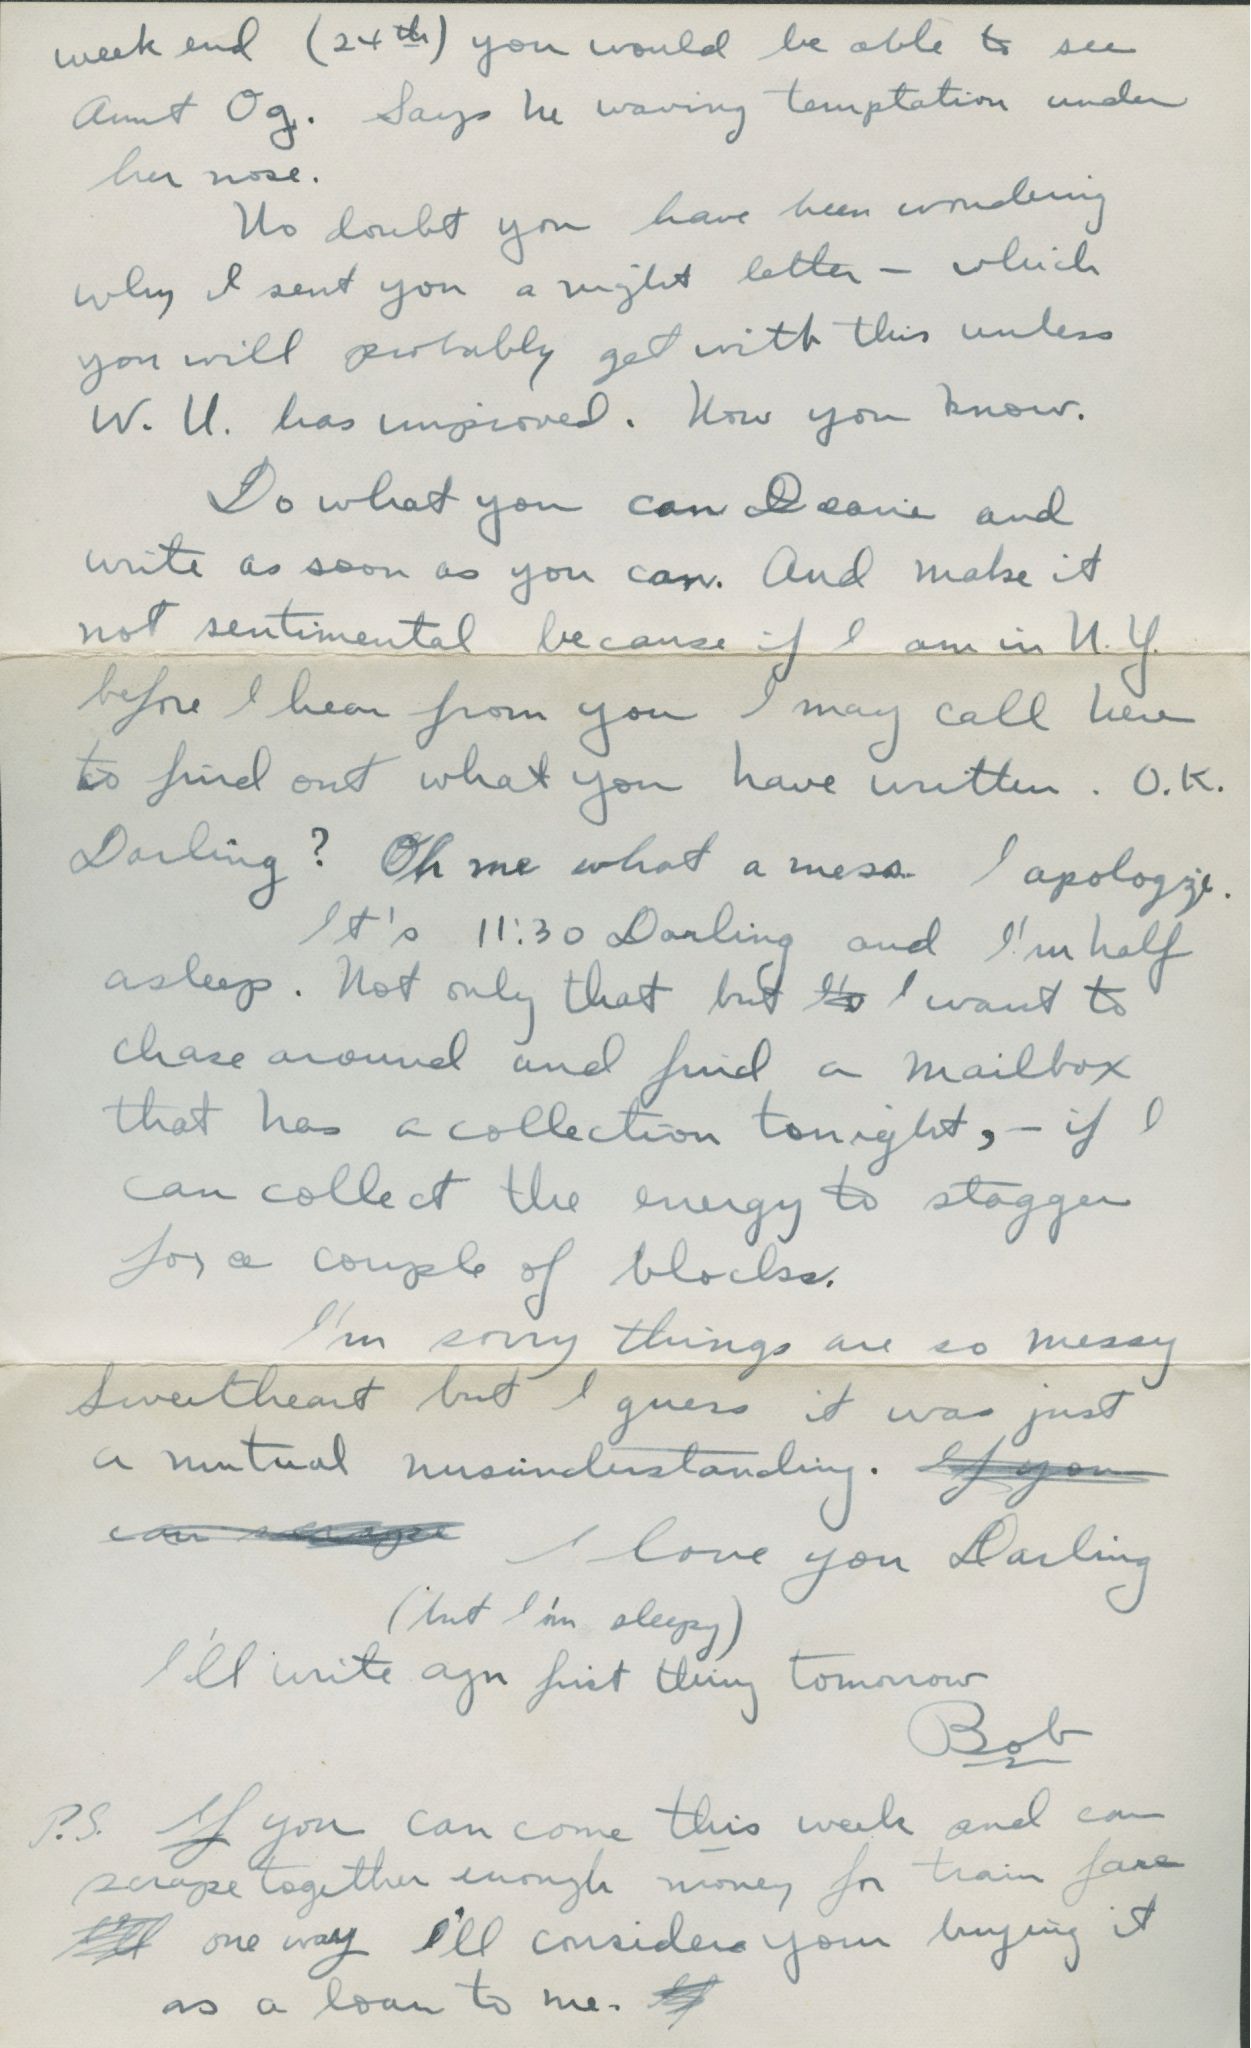 week end (24th) you would be able to see
Aunt Og. Says he waving temptation under
her nose.
No doubt you have been wondering
why I sent you a night letter – which
you will probably get with this unless
W. U. has improved. Now you know.
Do what you can Dearie and
write as soon as you can. And make it
not sentimental because if I am in N.Y.
before I hear from you I may call here
to find out what you have written. O.K.
Darling? Oh me what a mess. I apologize.
It's 11:30 Darling and I'm half
asleep. Not only that but I want to
chase around and find a mailbox
that has a collection tonight, – if I
can collect the energy to stagger
for a couple of blocks.
I'm sorry things are so messy
Sweetheart but I guess it was just
a mutual misunderstanding. If you
can scrape I love you Darling
(but I'm sleepy)
I'll write agn first thing tomorrow
Bob
P.S. If you can come this week and can
scrape together enough money for train fare
I'll one way I'll consider your buying it
as a loan to me.